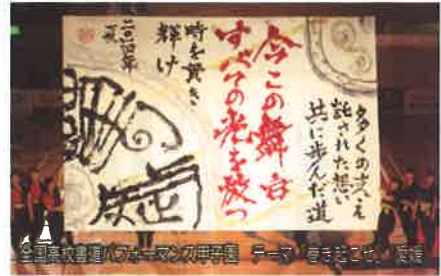 多くの
託された想い
共に歩んだ道
今この舞台
すべての光を放つ
時を貫き
輝け
二〇一四年
夏
全国高校書道パフォーマンス甲子園 テーマ 巻き起こせ 愛媛